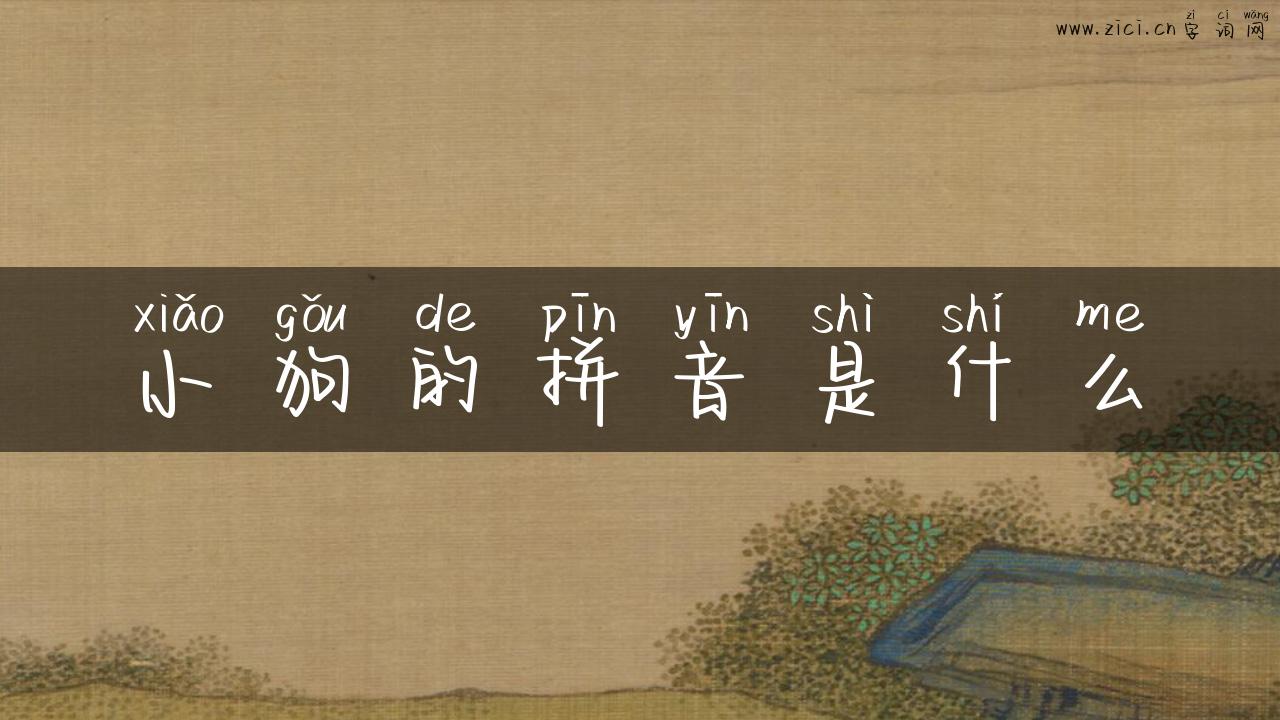 zì cí wǎng
www.zici.cn 字词网
xiǎo gǒu de pīn yīn shì shí me
小狗的拼音是什么